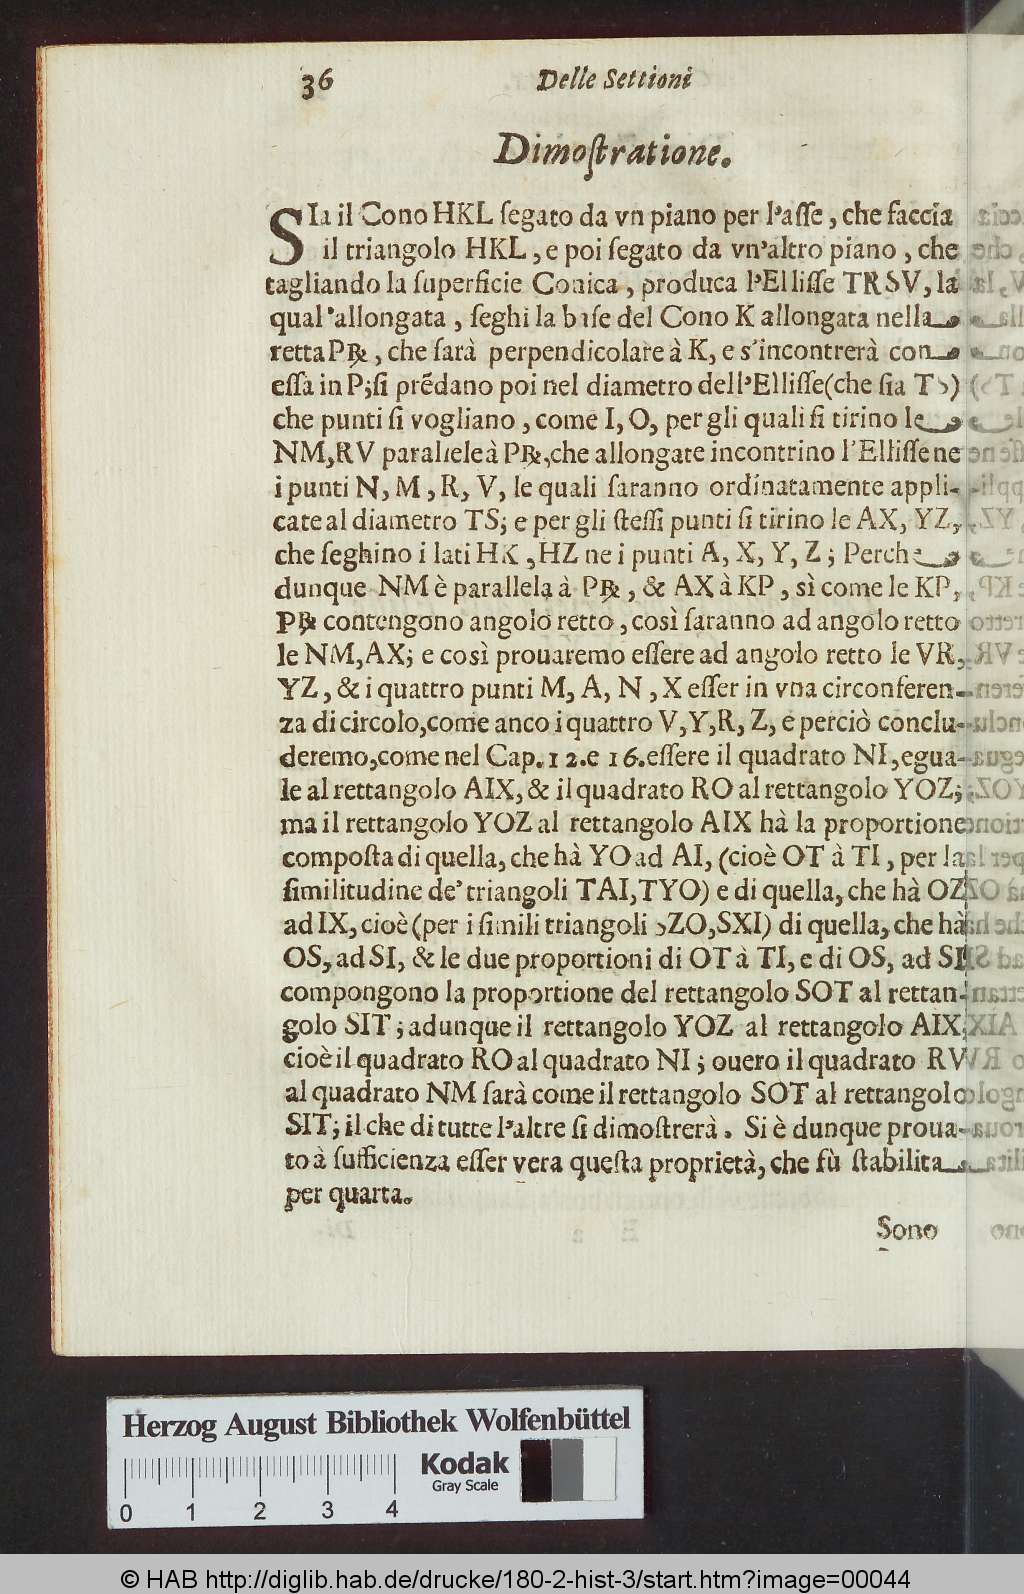 36 Delle Settioni
Dimoſtratione.
SIa il Cono HKL ſegato da vn piano per l'aſſe, che faccia
il triangolo HKL, e poi ſegato da vn'altro piano, che
tagliando la ſuperficie Conica, produca l'Elliſſe TRSV, la
qual'allongata, ſeghi la baſe del Cono K allongata nella
retta P℞, che ſarà perpendicolare à K, e s'incontrerà con
eſſa in P; ſi prẽdano poi nel diametro dell'Elliſſe (che ſia TS)
che punti ſi vogliano, come I, O, per gli quali ſi tirino le
NM, RV parallele à P℞, che allongate incontrino l'Elliſſe ne
i punti N, M, R, V, le quali ſaranno ordinatamente appli-
cate al diametro TS; e per gli ſteſſi punti ſi tirino le AX, YZ,
che ſeghino i lati HK, HZ ne i punti A, X, Y, Z; Perche
dunque NM è parallela à P℞, & AX à KP, sì come le KP,
P℞ contengono angolo retto, così ſaranno ad angolo retto
le NM, AX; e così prouaremo eſſere ad angolo retto le VR,
YZ, & i quattro punti M, A, N, X eſſer in vna circonferen-
za di circolo, come anco i quattro V, Y, R, Z, e perciò conclu-
deremo, come nel Cap. 12. e 16. eſſere il quadrato NI, egua-
le al rettangolo AIX, & il quadrato RO al rettangolo YOZ;
ma il rettangolo YOZ al rettangolo AIX hà la proportione
compoſta di quella, che hà YO ad AI, (cioè OT à TI, per la
ſimilitudine de' triangoli TAI, TYO) e di quella, che hà OZ
ad IX, cioè (per i ſimili triangoli SZO, SXI) di quella, che hà
OS, ad SI, & le due proportioni di OT à TI, e di OS, ad SI
compongono la proportione del rettangolo SOT al rettan-
golo SIT; adunque il rettangolo YOZ al rettangolo AIX,
cioè il quadrato RO al quadrato NI; ouero il quadrato RV
al quadrato NM ſarà come il rettangolo SOT al rettangolo
SIT; il che di tutte l'altre ſi dimoſtrerà. Si è dunque proua-
to à ſufficienza eſſer vera queſta proprietà, che fù ſtabilita
per quarta.
Sono
Herzog August Bibliothek Wolfenbüttel
Kodak
Gray Scale
0 1 2 3 4
© HAB http://diglib.hab.de/drucke/180-2-hist-3/start.htm?image=00044